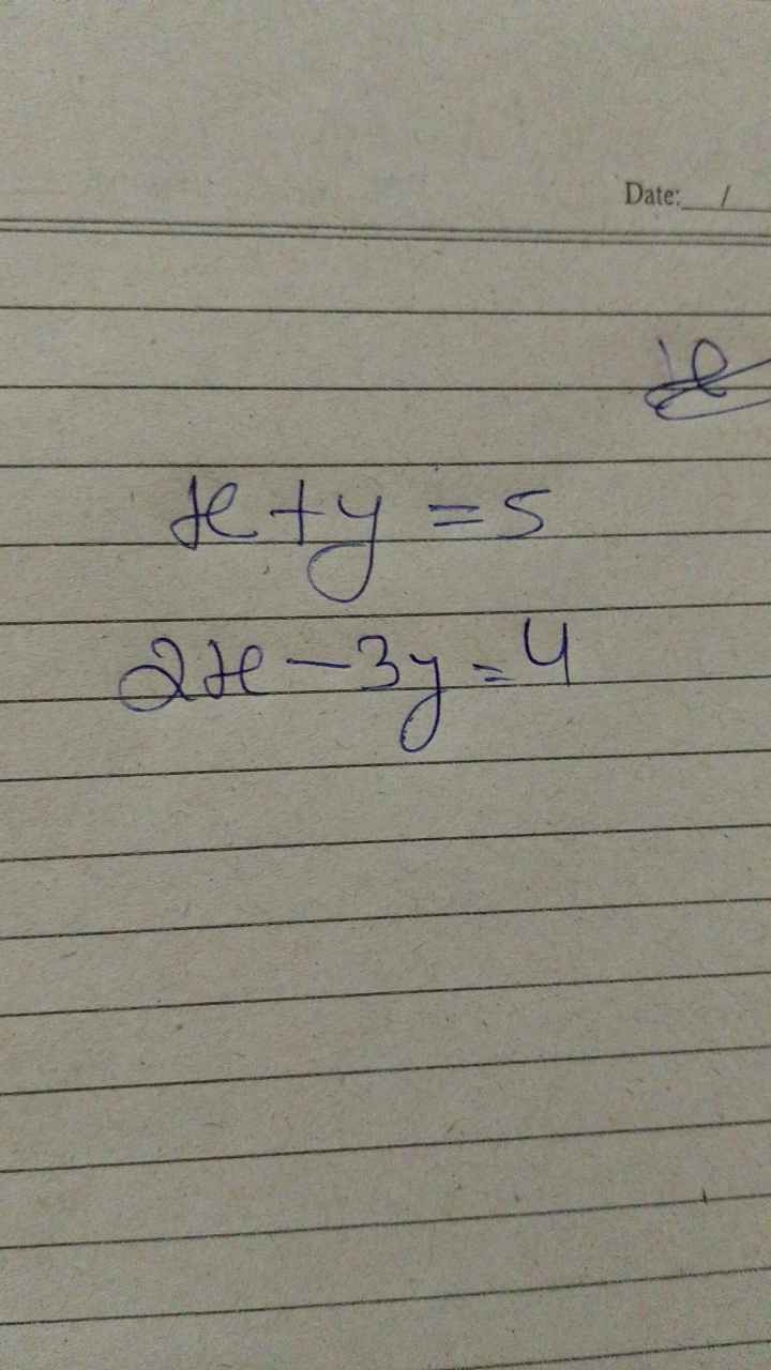 Date: __/__
x+y=5
2x-3y=4